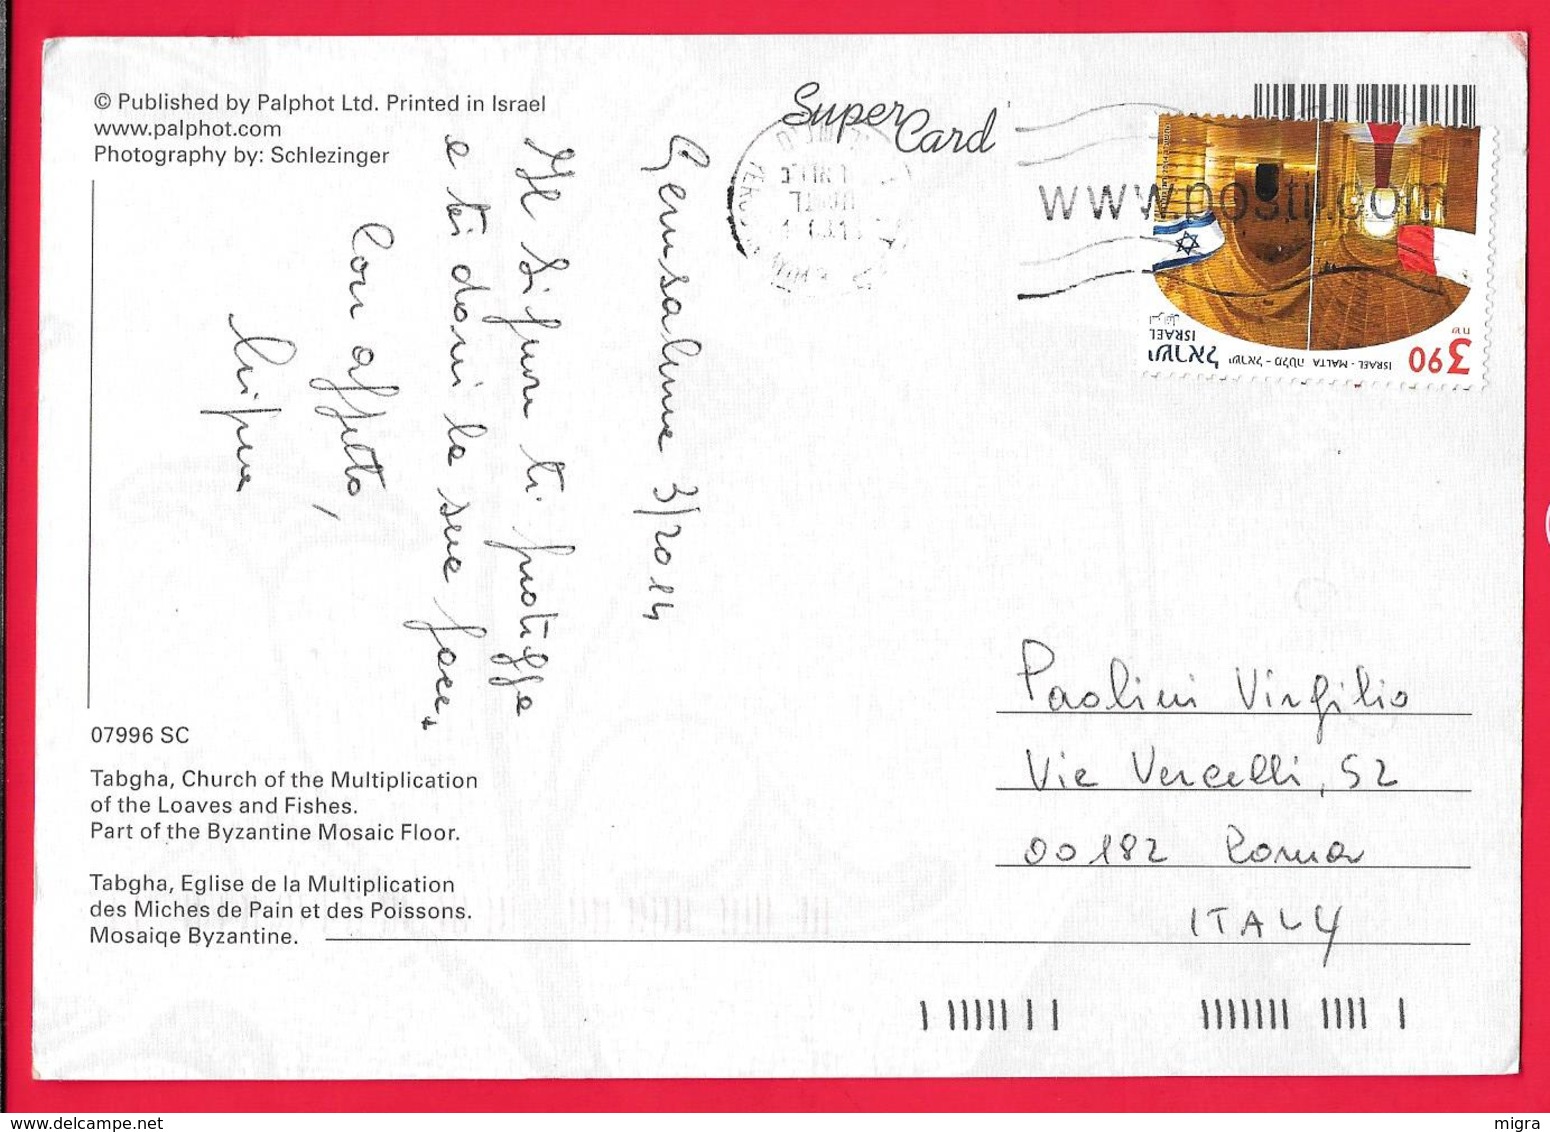 © Published by Palphot Ltd. Printed in Israel
www.palphot.com
Photography by: Schlezinger
Super Card
www.postil.com
3.90
ISRAEL - MALTA ישראל - מלטה
ישראל
ISRAEL
اسرائيل
Gerusalemme 3/2014
Il Signore ti protegga
e ti doni la sua pace.
Con affetto,
07996 SC
Tabgha, Church of the Multiplication
of the Loaves and Fishes.
Part of the Byzantine Mosaic Floor.
Tabgha, Eglise de la Multiplication
des Miches de Pain et des Poissons.
Mosaiqe Byzantine.
Paolini Virgilio
Via Vercelli, 52
00182 Roma
ITALY
www.delcampe.net
migra